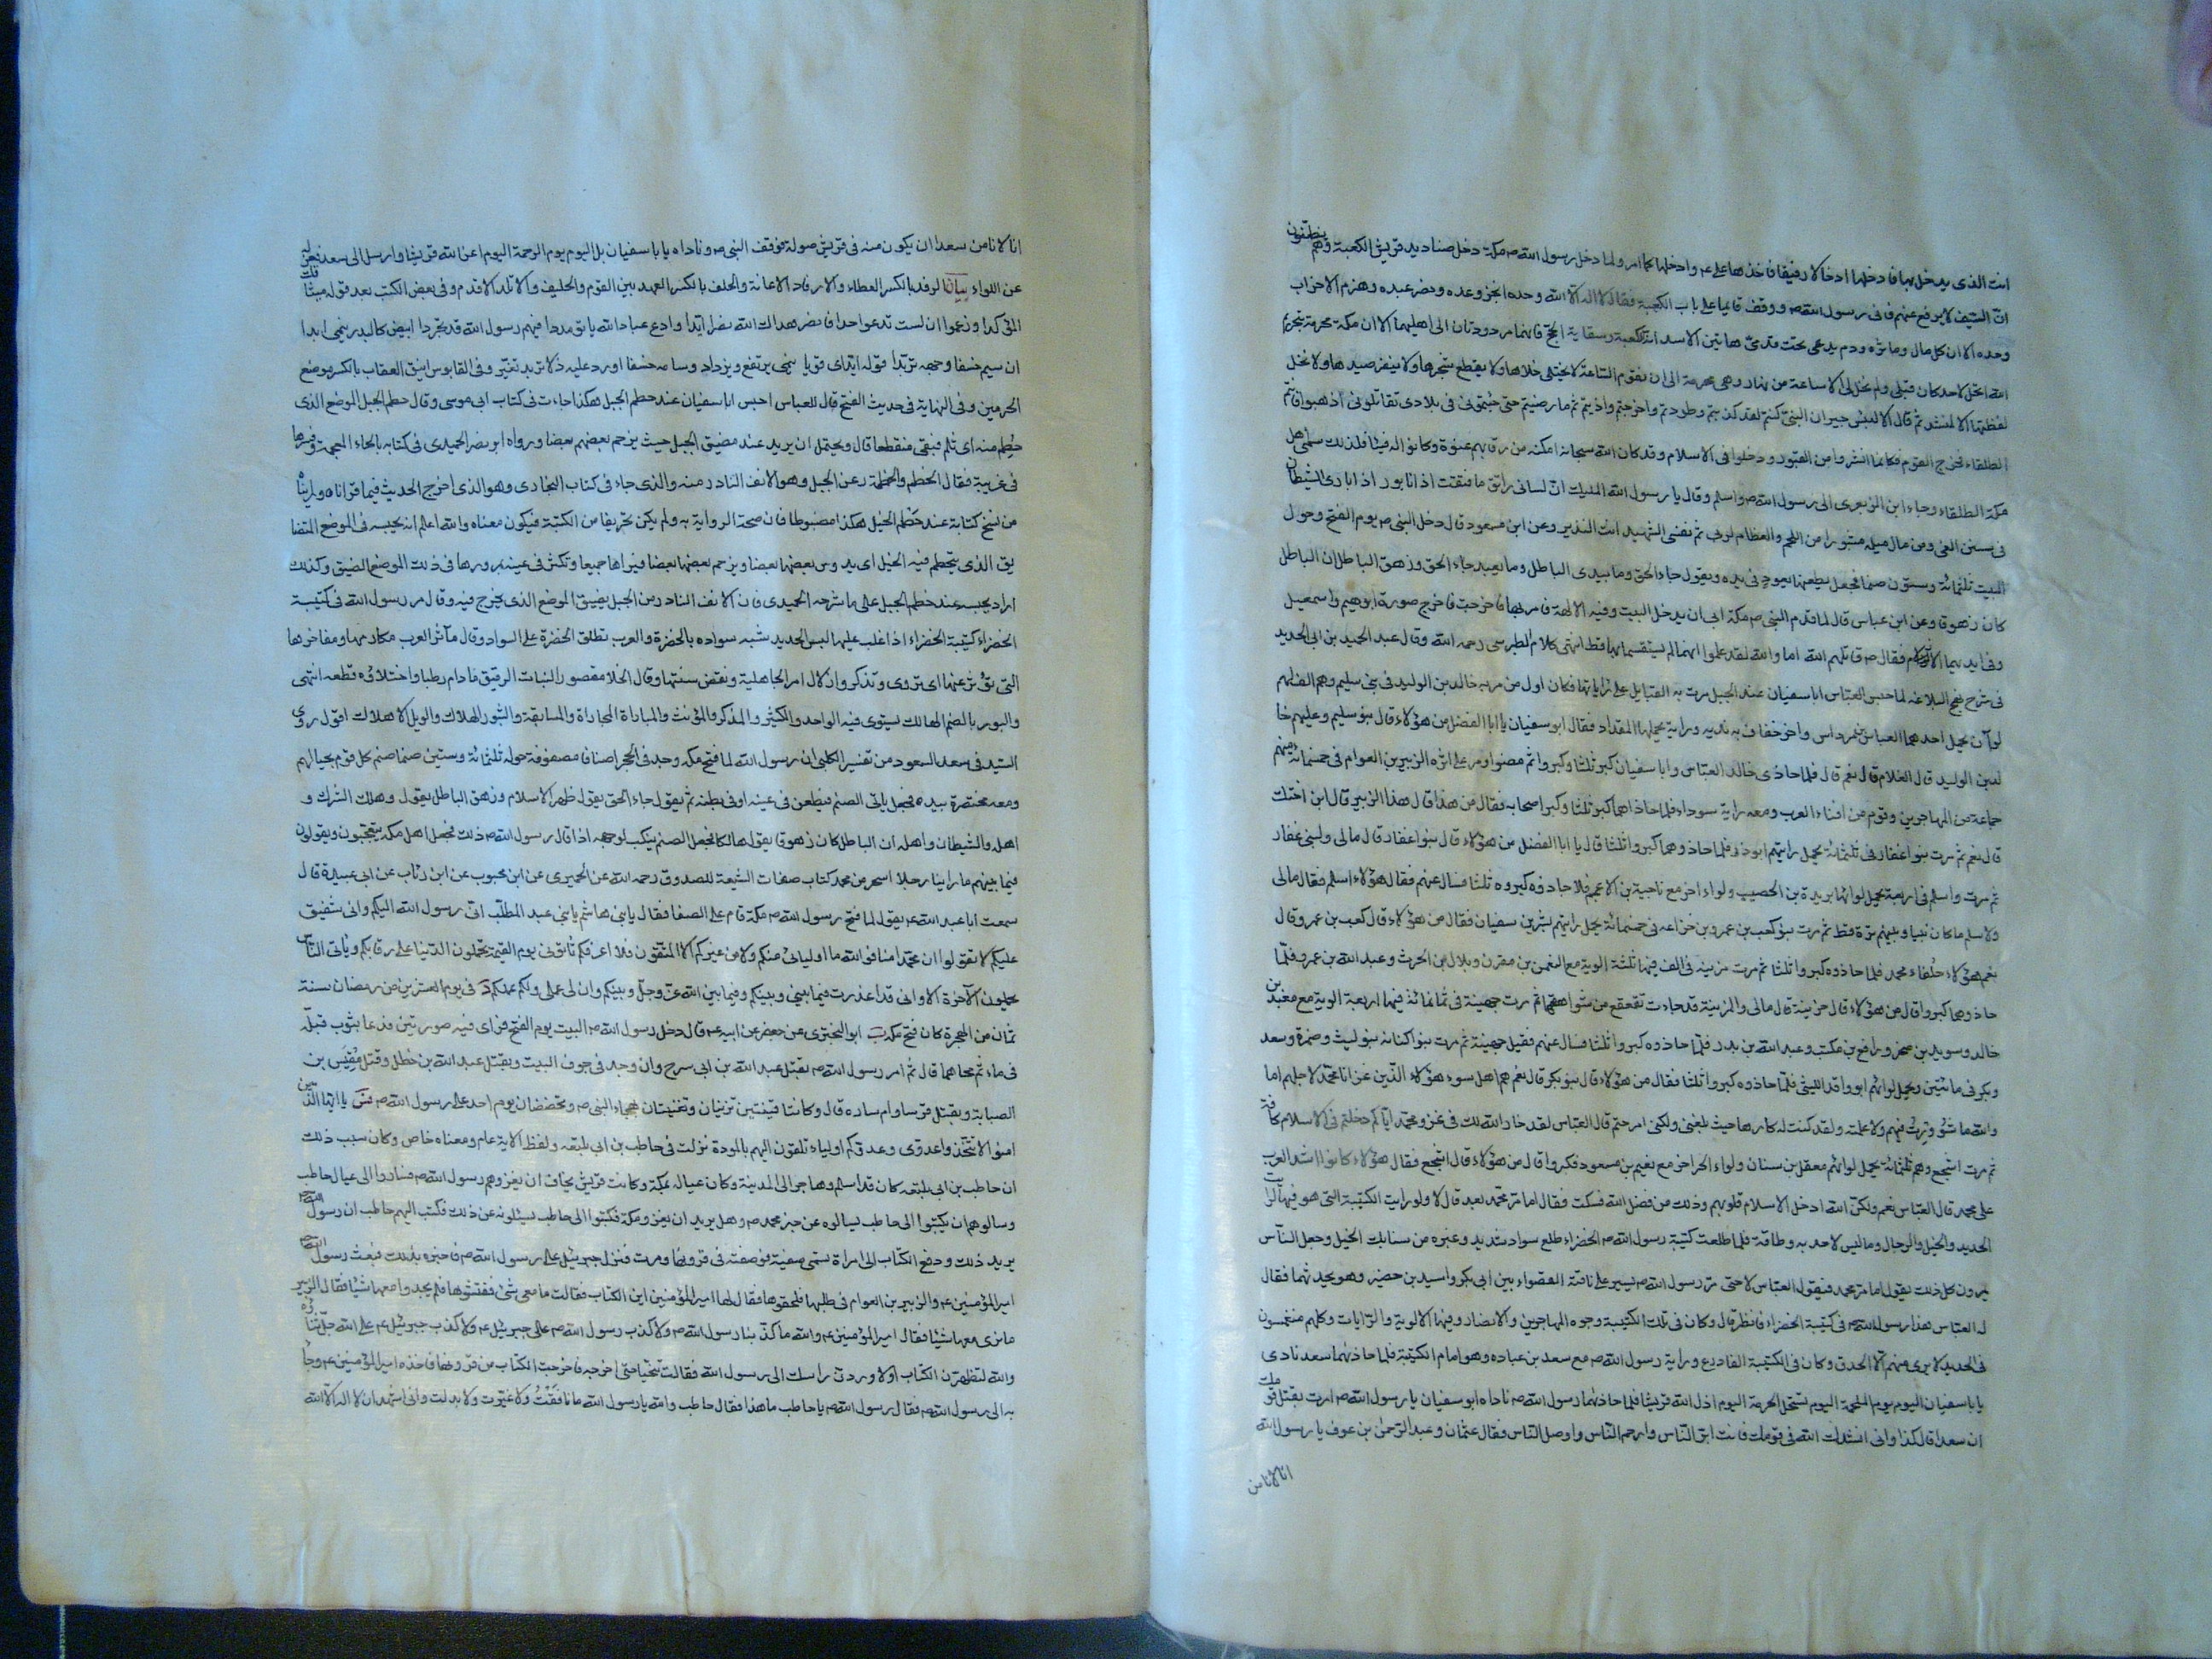 انت الذى يدخل بها فادخلها ادخالا رفيقا فاخذها على ع وادخلها كما امر ولما دخل رسول الله ص مكة دخل صناديد قريش الكعبة وهم يظنون
انّ السيف لا يرفع عنهم فاتى رسول الله ص ووقف قائما على باب الكعبة فقال لا اله الا الله وحده انجز وعده ونصر عبده وهزم الاحزاب
وحده الا ان كل مال وماثرة ودم يدعى تحت قدمىّ هاتين الا سدانة الكعبة وسقاية الحاج فانهما مردودتان الى اهليهما الا ان مكة محرمة بتحريم
الله لم تحل لاحد كان قبلى ولم تحل لى الا ساعة من نهار وهى محرمة الى ان تقوم الساعة لا يختلى خلاها ولا يقطع شجرها ولا ينفر صيدها ولا تحل
لقطتها الا لمنشد ثم قال الا لبئس جيران النبى كنتم لقد كذبتم وطردتم واخرجتم واذيتم ثم ما رضيتم حتى جئتمونى فى بلادى تقاتلونى اذهبوا فانتم
الطلقاء فخرج القوم فكانما انشروا من القبور ودخلوا فى الاسلام وقد كان الله سبحانه امكنه من رقابهم عنوة وكانوا له فيئا فلذلك سمى اهل
مكة الطلقاء وجاء ابن الزبعرى الى رسول الله ص واسلم وقال يا رسول الله المليك انّ لسانى راتق ما فتقت اذ انا بور اذ ابارى الشيطان
فى سنن الغى ومن مال ميله مثبورا من اللحم والعظام لربى ثم نفسى الشهيد انت النذير وعن ابن مسعود قال دخل النبى ص يوم الفتح وحول
البيت ثلثمائة وستون صنما فجعل يطعنها بعود فى يده ويقول جاء الحق وما يبدى الباطل وما يعيد جاء الحق وزهق الباطل ان الباطل
كان زهوقا وعن ابن عباس قال لما قدم النبى ص مكة ابى ان يدخل البيت وفيه الالهة فامر بها فاخرجت فاخرج صورة ابرهيم واسمعيل
وفى ايديهما الازلام فقال ص قاتلهم الله اما والله لقد علموا انهما لم يستقسما بها قط انتهى كلام الطبرسى رحمه الله وقال عبد الحميد بن ابى الحديد
فى شرح نهج البلاغه لما حبس العباس ابا سفيان عند الجبل مرت به القبايل على راياتها فكان اول من مر به خالد بن الوليد فى بنى سليم وهم الف لهم
لوآن يحمل احدهما العباس بن مرداس واخر خفاف بن ندبه وراية يحملها المقداد فقال ابو سفيان يا ابا الفضل من هؤلاء قال بنو سليم وعليهم خا
لد بن الوليد قال الغلام قال نعم قال فلما حاذى خالد العباس وابا سفيان كبر ثلثا وكبروا ثم مضوا ومر على اثره الزبير بن العوام فى خمسمائة منهم
جماعة من المهاجرين وقوم من افناء العرب ومعه راية سوداء فلما حاذاهما كبر ثلثا وكبر اصحابه فقال من هذا قال هذا الزبير قال ابن اختك
قال نعم ثم مرت بنو غفار فى ثلثمائة يحمل رايتهم ابو ذر فلما حاذوهما كبروا ثلثا قال يا ابا الفضل من هؤلاء قال بنوا غفار قال مالى ولبنى غفار
ثم مرت اسلم فى اربعمائة يحمل لوائها بريدة بن الحصيب ولواء اخر مع ناجية بن الاعجم فلما حاذوه كبروه ثلثا فسال عنهم فقال هؤلاء اسلم فقال مالى
ولاسلم ما كان بيننا وبينهم ترة قط ثم مرت بنو كعب بن عمرو بن خزاعه فى خمسمائة يحمل رايتهم بشر بن سفيان فقال من هؤلاء قال كعب بن عمرو قال
نعم هؤلاء حلفاء محمد فلما حاذوه كبروا ثلثا ثم مرت مزينه فى الف فيها ثلثة الوية مع النعمن بن مقرن وبلال بن الحرث وعبد الله بن عمرو فلما
حاذوهما كبروا قال من هؤلاء قال مزينة قال مالى والمزينة قد جاءت تقعقع من شواهقها ثم مرت جهينة فى ثمانمائة فيها اربعة الوية مع معبد بن
خالد وسويد بن صخر ورافع بن مكيث وعبد الله بن بدر فلما حاذوه كبروا ثلثا فسال عنهم فقيل جهينة ثم مرت بنوا كنانه بنو ليث وضمرة وسعد
وبكر فى مائتين ويحمل لوائهم ابو واقد الليثى فلما حاذوه كبروا ثلثا فقال من هؤلاء قال بنو بكر قال نعم هم اهل سوء هؤلاء الذين غزانا محمد لاجلهم اما
والله ما شوورت فيهم ولا علمته ولقد كنت له كارها حيث بلغنى ولكنى امر حتم قال العباس لقد خار الله لك فى غزو محمد اياكم دخلتم فى الاسلام كافة
ثم مرت اشجع وهم ثلثمائة يحمل لوائهم معقل بن سنان ولواء اخر مع نعيم بن مسعود فكبروا قال من هؤلاء قال اشجع فقال هؤلاء كانوا اشد العرب
على محمد قال العباس نعم ولكن الله ادخل الاسلام قلوبهم وذلك من فضل الله فسكت فقال اما مر محمد بعد قال لا ولو رايت الكتيبة التى هو فيها لرايت
الحديد والخيل والرجال وما ليس لاحد به وطاقة فلما طلعت كتيبة رسول الله ص الخضراء طلع سواد شديد وغبره من سنابك الخيل وجعل الناس
يمرون كل ذلك يقول اما مر محمد فيقول العباس لا حتى مر رسول الله ص يسير على ناقته القصواء بين ابى بكر واسيد بن حضير وهو يحدثهما فقال
له العباس هذا رسول الله ص فى كتيبة الخضراء فانظر قال وكان فى تلك الكتيبة وجوه المهاجرين والانصار وفيها الالوية والرايات وكلهم منغمسون
فى الحديد لا يرى منهم الا الحدق وكان فى الكتيبة الفا درع وراية رسول الله ص مع سعد بن عباده وهو امام الكتيبة فلما حاذهما سعد نادى
يا با سفيان اليوم يوم الملحمة اليوم تستحل الحرمة اليوم اذل الله قريشا فلما حاذهما رسول الله ص ناداه ابو سفيان يا رسول الله ص امرت بقتل قومك
ان سعدا قال كذا وانى انشدك الله فى قومك فانت ابر الناس وارحم الناس واوصل الناس فقال عثمان وعبد الرحمن بن عوف يا رسول الله
انا لانامن
انا لانامن سعدا ان يكون منه فى قريش صولة فوقف النبى ص وناداه يا با سفيان بل اليوم يوم الرحمة اليوم اعز الله قريشا وارسل الى سعد فعزله
عن اللواء بيان الرفد بالكسر العطاء والارفاد الاعانة والحلف بالكسر العهد بين القوم والحليف والاتلد الاقدم وفى بعض الكتب بعد قوله ميثاقك
المؤكدا وزعموا ان لست تدعو احدا فانصر هداك الله نصرا ايدا وادع عباد الله ياتو مددا فيهم رسول الله قد تجردا ابيض كالبدر ينمى ابدا
ان سيم خسفا وجهه تربدا قوله ايدا اى قويا ينمى يرتفع ويزداد وسامه خسفا اورد عليه ذلا تربد تغير وفى القاموس انيق العقاب بالكسر موضع
الحرمين وفى النهاية فى حديث الفتح قال للعباس احبس ابا سفيان عند حطم الجبل هكذا جاءت فى كتاب ابى موسى وقال حطم الجبل الموضع الذى
حطم منه اى ثلم فبقى منقطعا قال ويحتمل ان يريد عند مضيق الجبل حيث يزحم بعضهم بعضا ورواه ابو نصر الحميدى فى كتابه بالخاء المعجمة وفسرها
فى غريبه فقال الخطم والخطمة رعن الجبل وهو الانف النادر منه والذى جاء فى كتاب البخارى وهو الذى اخرج الحديث فيما قراناه ورايناه
من نسخ كتابه عند حطم الخيل هكذا مضبوطا فان صحت الرواية به ولم يكن تحريفا من الكتبة فيكون معناه والله اعلم انه يحبسه فى الموضع المتضا
يق الذى يتحطم فيه الخيل اى يدوس بعضها بعضا ويزحم بعضها بعضا فيراها جميعا وتكثر فى عينه بمرورها فى ذلك الموضع الضيق وكذلك
اراد بحبسه عند خطم الجبل على ما شرحه الحميدى فان الانف النادر من الجبل يضيق الموضع الذى يخرج فيه وقال مر رسول الله فى كتيبة
الخضراء كتيبة الخضراء اذا غلب عليها لبس الحديد شبه سواده بالخضرة والعرب تطلق الخضرة على السواد وقال مآثر العرب مكارمها ومفاخرها
التى تؤثر عنها اى تروى وتذكر وازلال امر الجاهلية ونقض سنتها وقال الخلا مقصور النبات الرقيق مادام رطبا واختلاؤه قطعه انتهى
والبور بالضم الهالك يستوى فيه الواحد والكثير والمذكر والمؤنث والمباراة المجاراة والمسابقة والثبور الهلاك والويل والاهلاك اقول روى
السيد فى سعد السعود من تفسير الكلبى ان رسول الله لما فتح مكه وجد فى الحجر اصناما مصفوفة حوله ثلثمائة وستين صنما صنم كل قوم بحيالهم
ومعه مخصرة بيده فجعل ياتى الصنم فيطعن فى عينه او فى بطنه ثم يقول جاء الحق يقول ظهر الاسلام وزهق الباطل يقول وهلك الشرك و
اهله والشيطان واهله ان الباطل كان زهوقا يقول هالكا فجعل الصنم ينكب لوجهه اذا قال رسول الله ص ذلك فجعل اهل مكه يتعجبون ويقولون
فيما بينهم ما راينا رجلا اسحر من محمد كتاب صفات الشيعة للصدوق رحمه الله عن الحميرى عن ابن محبوب عن ابن رئاب عن ابى عبيدة قال
سمعت ابا عبد الله ع يقول لما فتح رسول الله ص مكة قام على الصفا فقال يا بنى هاشم يا بنى عبد المطلب انى رسول الله اليكم وانى شفيق
عليكم لا تقولوا ان محمدا منا فوالله ما اوليائى منكم ولا من غيركم الا المتقون فلا اعرفكم تاتونى يوم القيمة تحملون الدنيا على رقابكم وياتى الناس
يحملون الآخرة الا وانى قد اعذرت فيما بينى وبينكم وفيما بين الله عز وجل وبينكم وان لى عملى ولكم عملكم فى يوم العشرين من رمضان سنة
ثمان من الهجرة كان فتح مكة ب ابو البخترى عن جعفر عن ابيه ع قال دخل رسول الله ص البيت يوم الفتح فراى فيه صورتين فدعا بثوب فبلّه
فى ماء ثم محاهما قال ثم امر رسول الله ص بقتل عبد الله بن ابى سرح وان وجد فى جوف البيت وبقتل عبد الله بن خطل وقتل مقيس بن
الصبابة وبقتل فرسا وام ساره قال وكانتا قينتين تزنيان وتغنيان بهجاء النبى ص وتحضضان يوم احد على رسول الله ص يا ايها الذين
امنوا لا تتخذوا عدوى وعدوكم اولياء تلقون اليهم بالمودة نزلت فى حاطب بن ابى بلتعه ولفظ الاية عام ومعناه خاص وكان سبب ذلك
ان حاطب بن ابى بلتعه كان قد اسلم وهاجر الى المدينة وكان عياله بمكة وكانت قريش تخاف ان يغزوهم رسول الله ص فصاروا الى عيال حاطب
وسالوهم ان يكتبوا الى حاطب يسالوه عن خبر محمد ص وهل يريد ان يغزو مكة فكتبوا الى حاطب يسئلونه عن ذلك فكتب اليهم حاطب ان رسول الله ص
يريد ذلك ودفع الكتاب الى امراة تسمى صفية فوضعته فى قرونها ومرت فنزل جبرئيل على رسول الله ص فاخبره بذلك فبعث رسول الله ص
امير المؤمنين ع والزبير بن العوام فى طلبها فلحقوها فقال لها امير المؤمنين اين الكتاب فقالت ما معى شئ ففتشوها فلم يجدوا معها شيئا فقال الزبير
ما نرى معها شيئا فقال امير المؤمنين ع والله ما كذبنا رسول الله ص ولا كذب رسول الله ص على جبرئيل ع ولا كذب جبرئيل ع على الله جل ثناؤه
والله لتظهرن الكتاب او لاوردن راسك الى رسول الله فقالت تنحيا حتى اخرجه فاخرجت الكتاب من قرونها فاخذه امير المؤمنين ع وجاء
به الى رسول الله ص فقال رسول الله ص يا حاطب ما هذا فقال حاطب والله يا رسول الله ما نافقت ولا غيرت ولا بدلت وانى اشهد ان لا اله الا الله